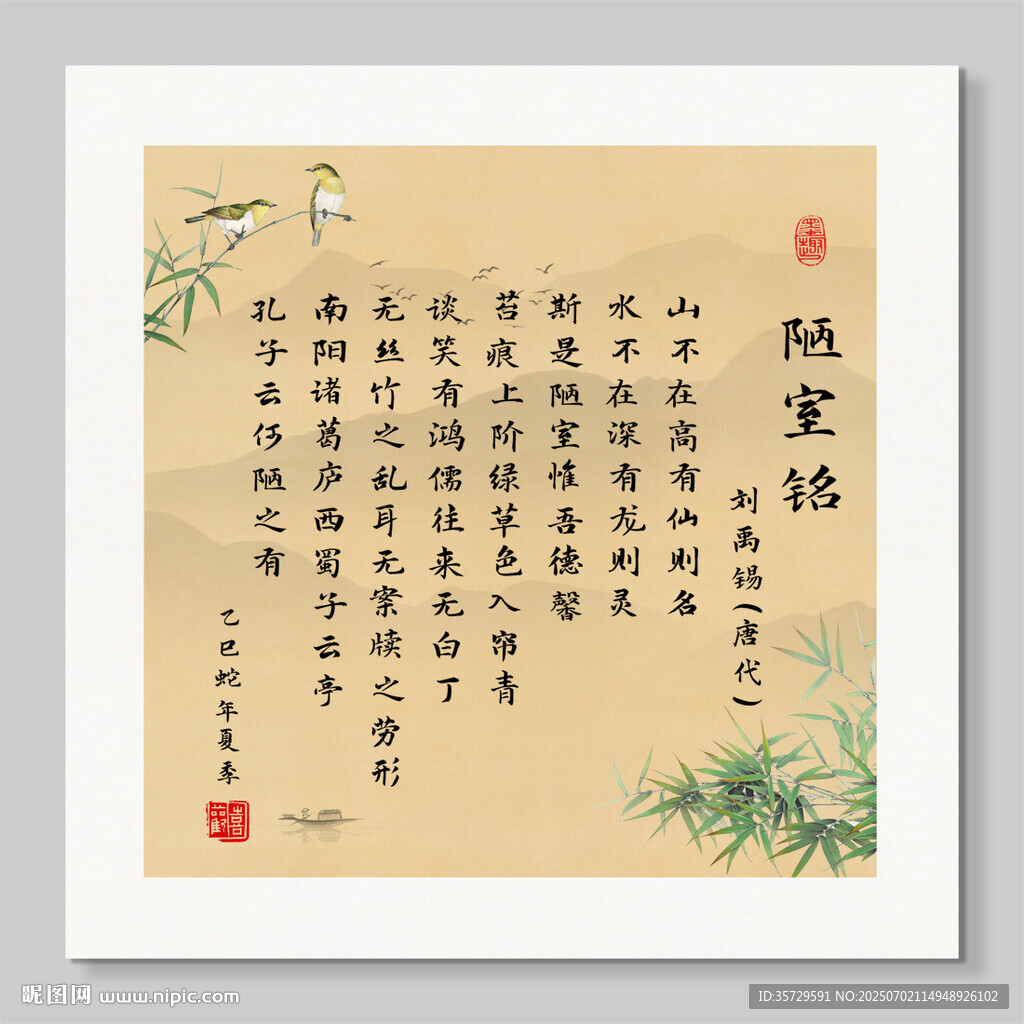 墨趣
陋室铭
刘禹锡(唐代)
山不在高有仙则名
水不在深有龙则灵
斯是陋室惟吾德馨
苔痕上阶绿草色入帘青
谈笑有鸿儒往来无白丁
无丝竹之乱耳无案牍之劳形
南阳诸葛庐西蜀子云亭
孔子云何陋之有
乙巳蛇年夏季
昵图网 www.nipic.com
ID:35729591 NO:20250702114948926102